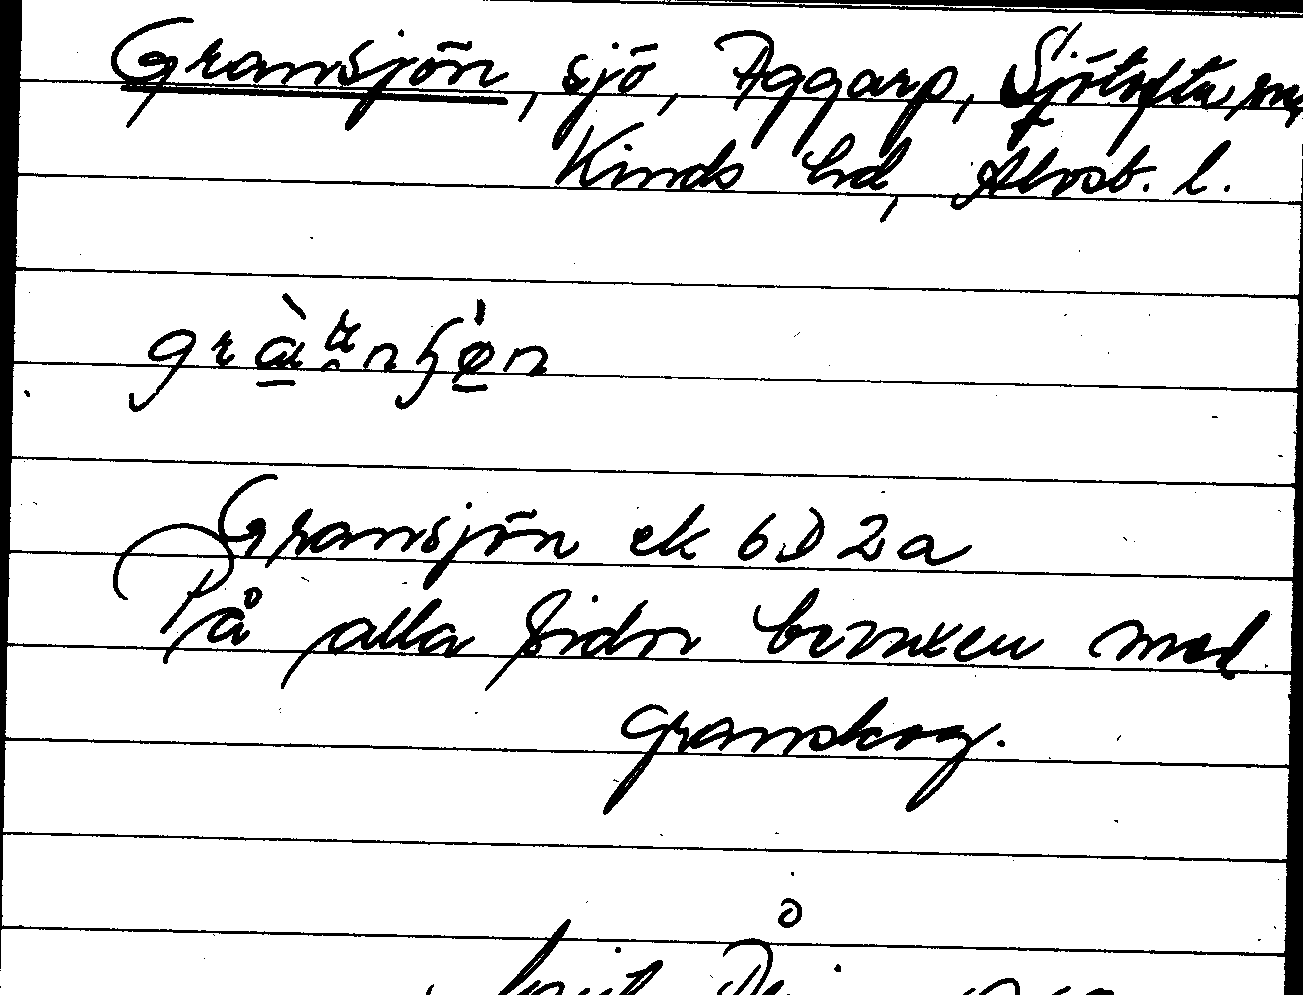 Gransjön, sjö, Aggarp, Sjötofta sn,
Kinds hd, Älvsb. l.
Gransjön ek 6D 2a
På alla sidor bevuxen med
granskog.